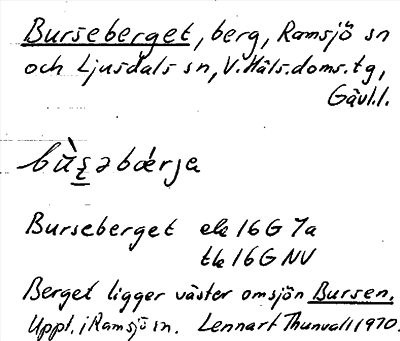 Burseberget, berg, Ramsjö sn
och Ljusdals sn, V. Häls. doms. tg,
Gävl. l.
Burseberget ek 16 G 7a
tk 16 G NV
Berget ligger väster om sjön Bursen.
Uppt. i Ramsjö sn. Lennart Thunvall 1970.